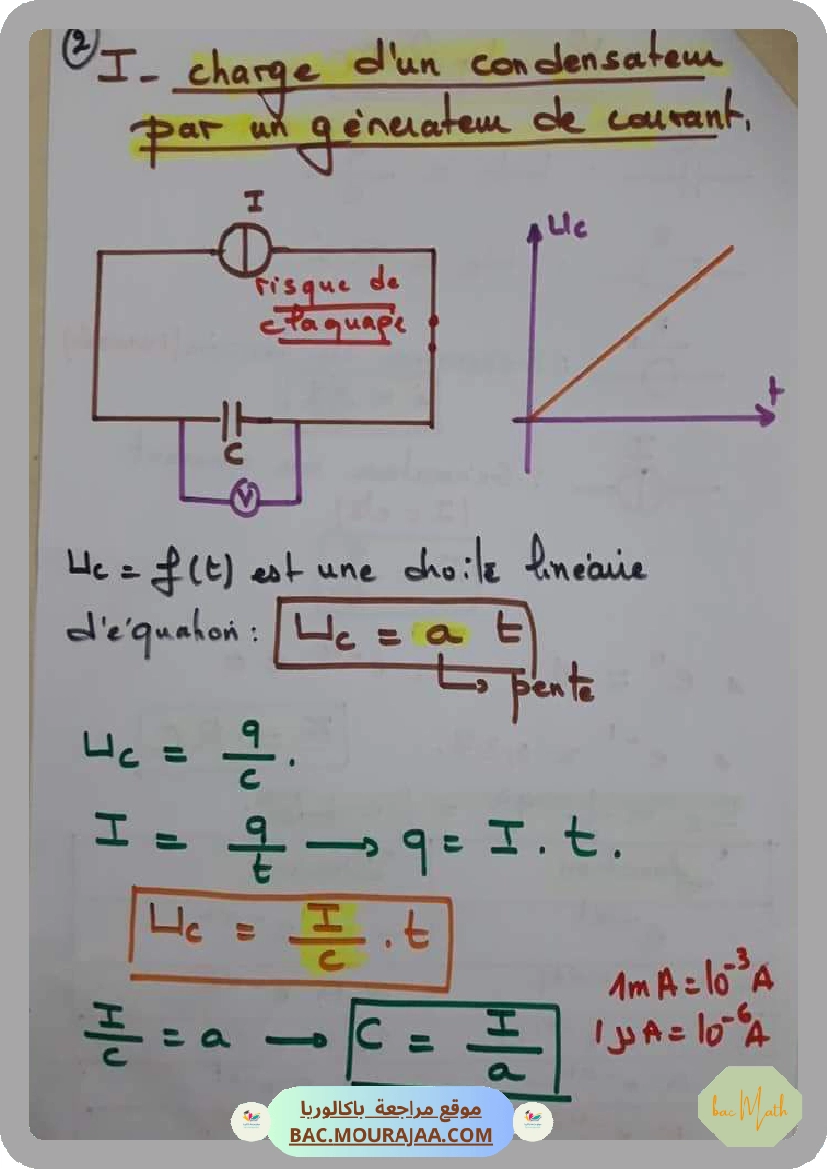 ②
I- charge d'un condensateur
par un générateur de courant.
I
risque de
claquage
C
V
Uc
t
Uc = f(t) est une droite linéaire
d'équation : Uc = a t
↳ pente
Uc = q/c .
I = q/t → q = I . t .
Uc = I/c . t
1mA = 10⁻³A
1μA = 10⁻⁶A
I/c = a → C = I/a
موقع مراجعة باكالوريا
BAC.MOURAJAA.COM
bac Math